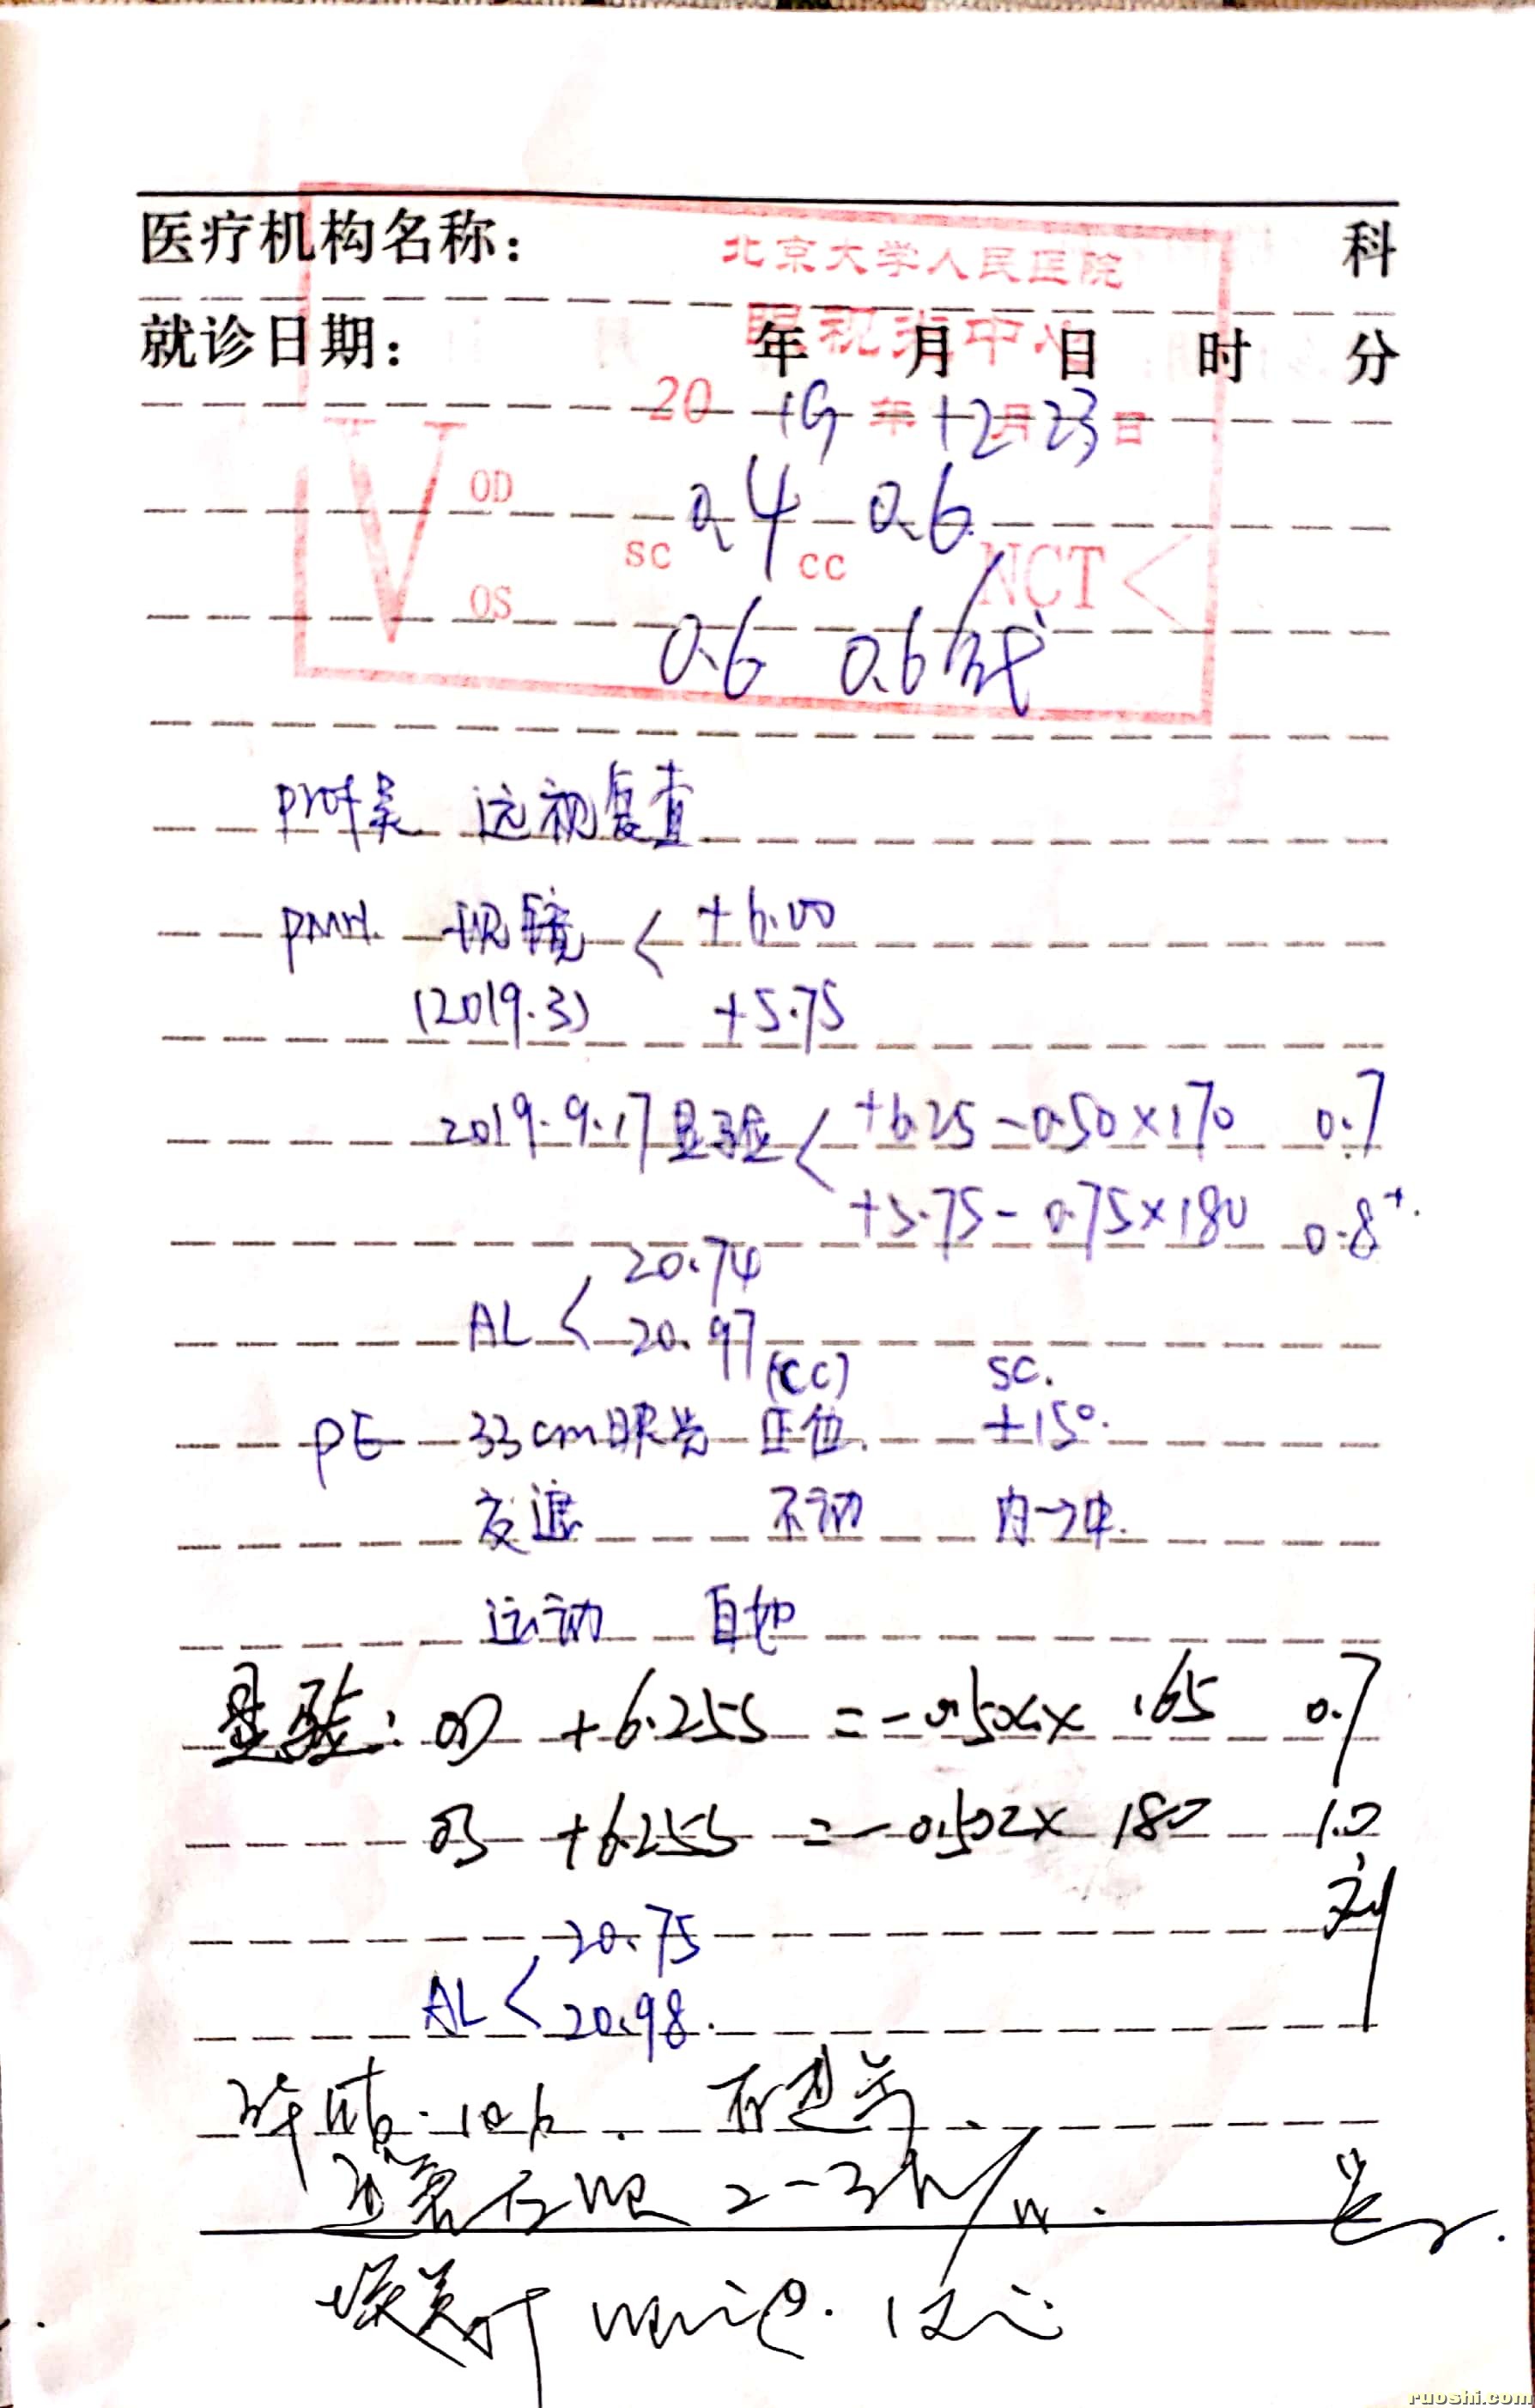 医疗机构名称： 北京大学人民医院 科
眼视光中心
就诊日期： 年 月 日 时 分
2019年12月23日
V OD sc 0.4 cc 0.6 NCT <
OS 0.6 0.6
远视复查
PMH. 现镜 < +6.00
(2019.3) +5.75
2019.9.17显验 < +6.25-0.50×170 0.7
+5.75-0.75×180 0.8⁺.
AL < 20.74
20.97
(CC) SC.
PE 33cm映光 正位. +15°.
交遮 不动 内→中.
运动 自如
显验: OD +6.25S = -0.50c× 165 0.7
OS +6.25S = -0.50c× 180 1.0
刘
AL < 20.75
20.98.
2-3h/w.
ruoshi.com